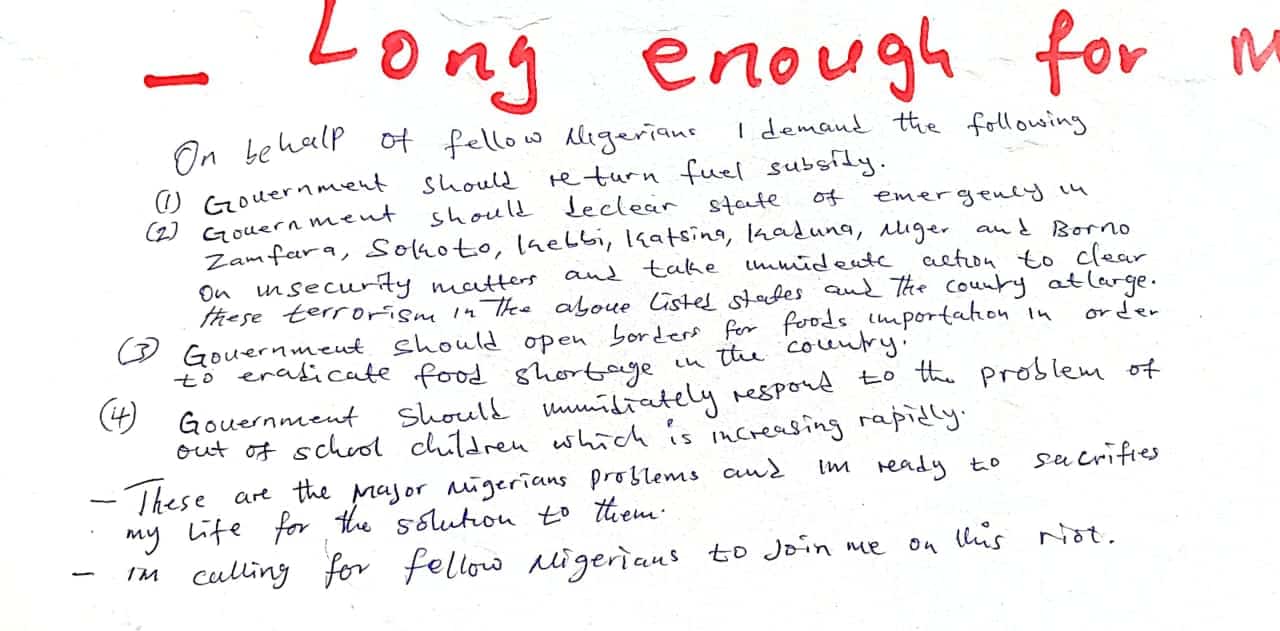 - Long enough for M
On behalf of fellow Nigerians I demand the following
(1) Government should return fuel subsidy.
(2) Government should declear state of emergency in
Zamfara, Sokoto, Kebbi, Katsina, Kaduna, Niger and Borno
on insecurity matters and take immideate action to clear
these terrorism in the above listed states and the country at large.
(3) Government should open borders for foods importation in order
to eradicate food shortage in the country.
(4) Government should immidiately respond to the problem of
out of school children which is increasing rapidly.
- These are the major Nigerians problems and im ready to sacrifies
my life for the solution to them.
- im calling for fellow Nigerians to join me on this riot.